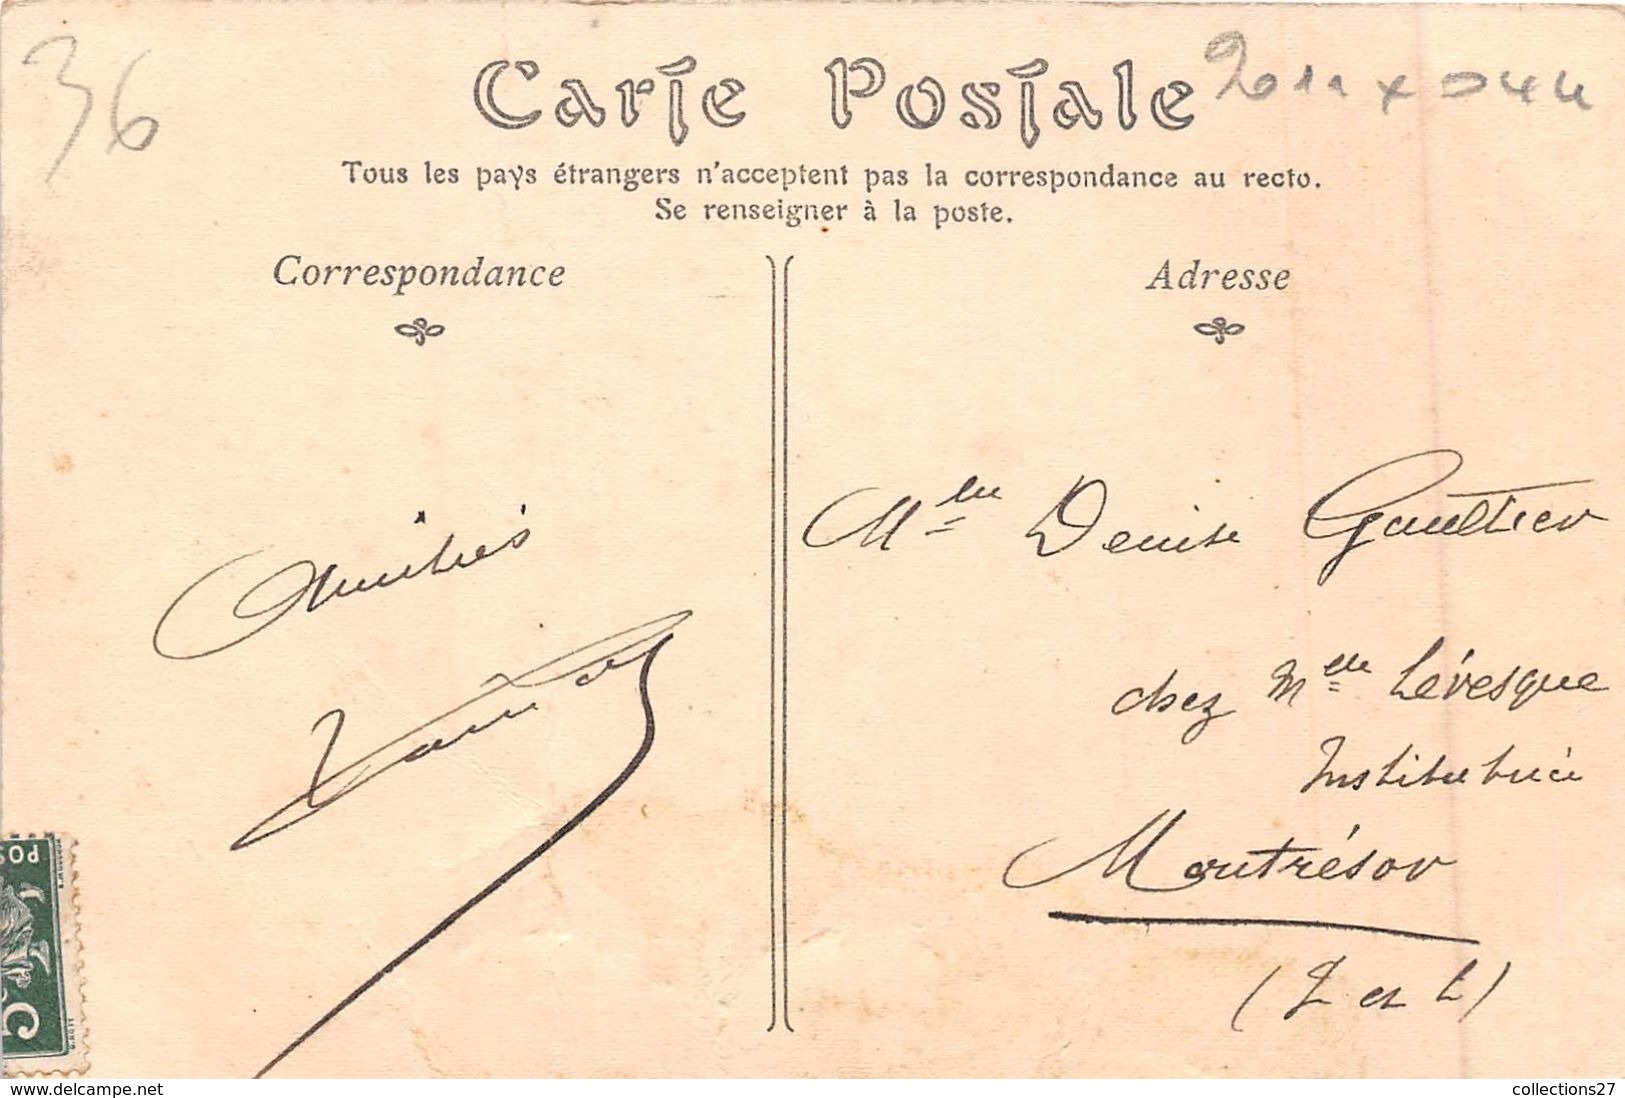 36
Carte Postale
Tous les pays étrangers n'acceptent pas la correspondance au recto.
Se renseigner à la poste.
Correspondance
Adresse
Amitiés
Mlle Denise Gaultier
chez Mlle Lévesque
Institutrice
Montrésor
(I et L)
POS
5
www.delcampe.net
collections27